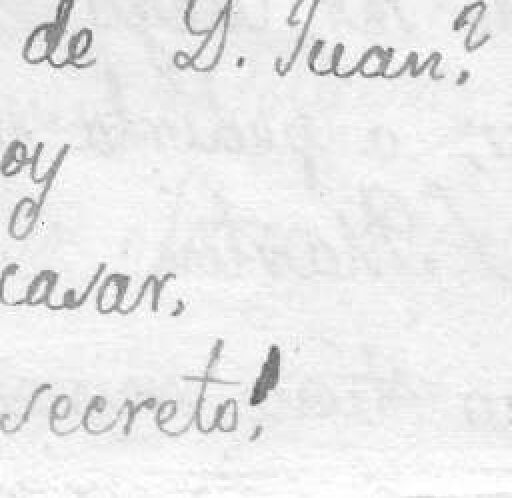 de D. Juan?
oy
casar,
secreto!